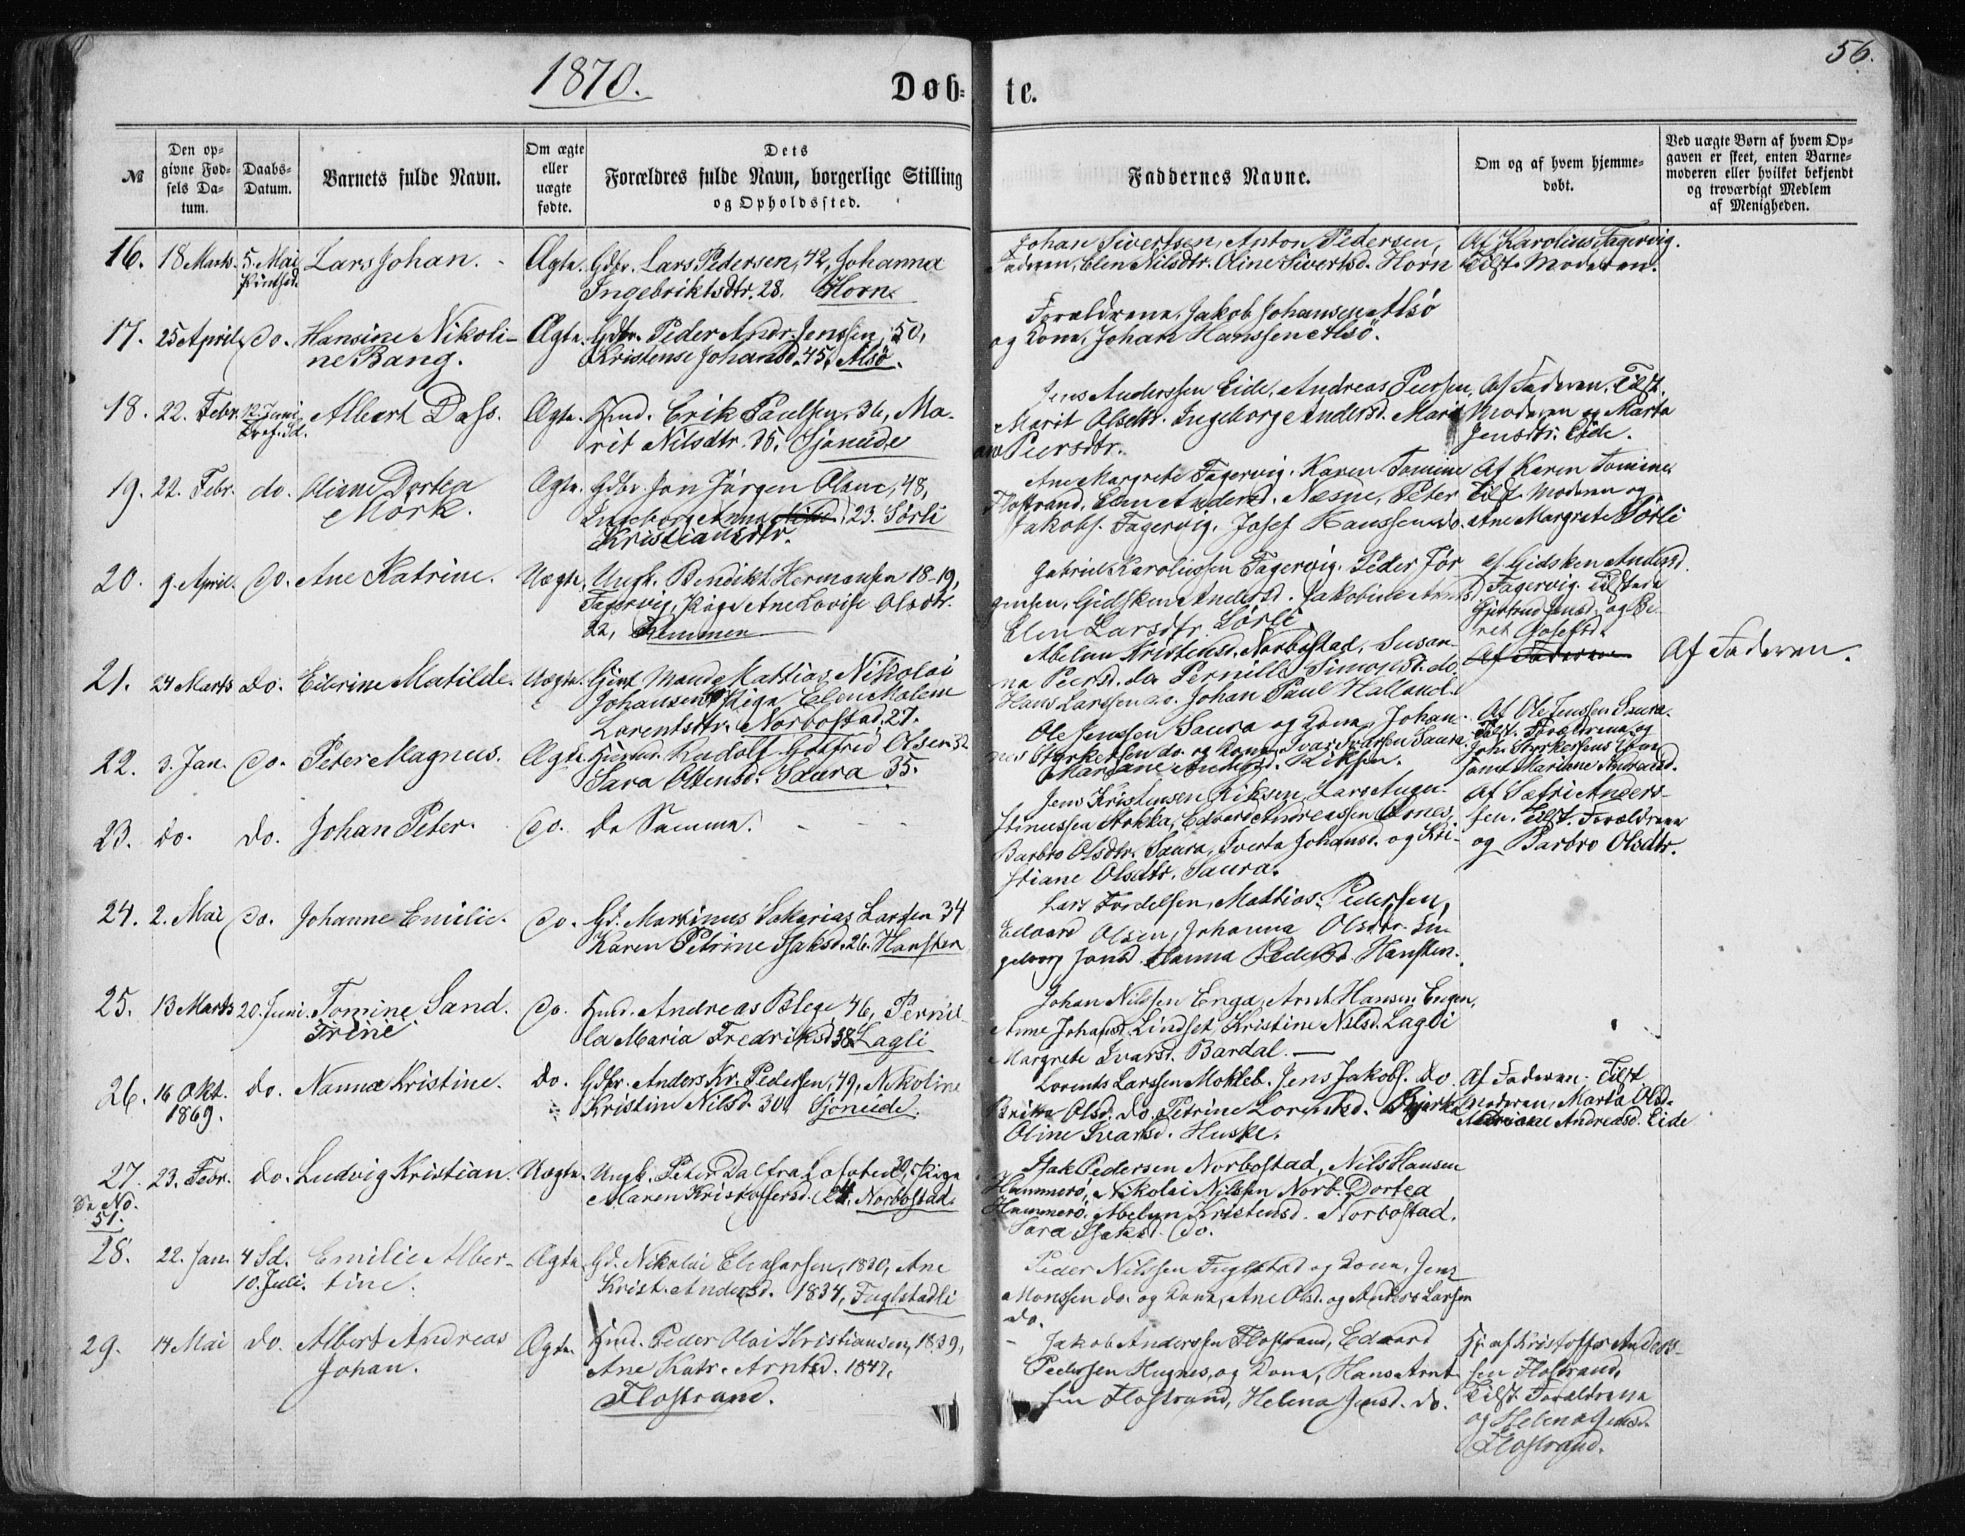 1870.
Døb-
te.
56.
№
Den op-
givne Fød-
sels Da-
tum.
Daabs-
Datum.
Barnets fulde Navn.
Om ægte
eller
uægte
fødte.
Dets
Forældres fulde Navn, borgerlige Stilling
og Opholdssted.
Faddernes Navne.
Om og af hvem hjemme-
døbt.
Ved uægte Børn af hvem Op-
gaven er skeet, enten Barne-
moderen eller hvilket bekjendt
og troværdigt Medlem
af Menigheden.
16. 18 Marts. 5. Mai
Lars Johan.
Ægte.
Gdbr. Lars Pedersen, 42, Johanna
Ingebriktsdtr. 28. Horn.
Johan Sivertsen, Anton Pedersen,
Faderen, Elen Nilsdtr. Oline Sivertsd. Horn
Af Karolius Fagervig.
Tilst. Moderen.
17. 25 April do.
Hansine Nikoli-
ne Bang.
Ægte.
Gdbr. Peder Andr. Jenssen, 50,
Kristense Johansd. 45, Alsø.
Forældrene, Jakob Johansen Alsø
og Kone, Johan Hanssen Alsø.
18. 22. Febr. 12. Juni
Tref. Sd.
Albert Dass.
Ægte.
Hmd. Erik Paulsen, 36, Ma-
rit Nilsdtr. 35. Sjoneide
Jens Anderssen Eide, Andreas Peersen,
Marit Olsdtr. Ingeborg Andersd. Mari
ane Peersdtr.
Af Faderen. Tilst.
Moderen og Marta
Jensdtr. Eide.
19. 22. Febr. do.
Oliane Dortea
Mörk.
Ægte.
Gdbr. Jon Jörgen Olsen, 48,
Ingeborg Anna 23. Sörli
Kristiansdtr.
Ane Margrete Fagervig. Karen Tomine
Flostrand, Elen Andersd. Næsne, Peter
Jakobs. Fagervig. Josef Hanssen do.
Af Karen Tomine
Tilst. Moderen og
Ane Margrete Sörli
20. 9 April. do. Ane Katrine.
Uægte.
Ungk. Bendikt Hermansen 18-19,
Fagervig, Pige Ane Lovise Olsdtr.
22, Hemmen
Gabriel Karoliussen Fagervig. Peder Jör
gensen, Gidsken Andersd. Jakobine Arntsd.
Elen Larsdtr. Sörli
Af Gidsken Andersd.
Fagervig. Tilstede
Gjertrud Jensd. og Be-
ret Josefsd.
21. 24 Marts do. Edvine Matilde.
Uægte.
Gjivt Mand Mattias Nikolai
Johansen, Pige Elen Malene
Lorentsdtr. Norbostad, 27.
Abelone Kristensd. Norbostad, Susan-
na Peersd. do Pernille Simonsd. do.
Hans Larssen do. Johan Paul Halland.
Af Faderen
Af Faderen.
22. 3. Jan. do. Peter Magnus.
Ægte.
Husmd. Rudolf Gotfrid Olsen 32
Sara Olsensd. Saura 35.
Ole Jenssen Saura og Kone, Johan-
nes Styrkersen do. og Kone, Ivar Ivarsen Saura,
Mariane Andersd. Riksen.
Af Ole Jenssen Saura.
Tilst. Forældrene og
Joh. Styrkersens Kone
samt Mariane Andersd.
23. do. do. Johan Peter.
do. De Samme. - - -
Jens Kristensen Riksen, Lars Augu-
stinussen Aakka, Edvard Andreassen Ornes,
Barbro Olsdtr. Saura, Iverta Johansd. og Kri-
stiane Olsdtr. Saura.
Af Safri Anders-
sen. Tilst. Forældrene
og Barbro Olsdtr.
24. 2. Mai do. Johanne Emilie.
do.
Gd. Martinus Sakarias Larsen 34
Karen Petrine Isaksd. 26. Hansten
Lars Tordelsen, Mattias Pedersen,
Edvard Olsen, Johanna Olsdtr. In-
geborg Jonsd. Hanna Pedersd. Hansten.
25. 13 Marts 20. Juni. Tomine Sand.
Trine
do.
Hmd. Andreas Blege 46, Pernil-
la Maria Fredriksd. 38. Lagli
Johan Nilssen Enga, Arnt Hansen Engen,
Anne Johansd. Lindset, Kristine Nilsd. Lagli
Margrete Ivarsd. Bardal. —
26. 16 Okt.
1869.
do. Nanna Kristine.
do.
Gdbr. Anders Kr. Pedersen, 49, Nikoline
Kristine Nilsd. 30. Sjoneide.
Lorents Larssen Mokleb. Jens Jakobs. do.
Britta Olsd. do. Petrine Lorentsd. Bjerka
Oline Ivarsd. Huske.
Af Faderen. Tilst.
Moderen, Marta Olsd.
Mariane Andreasd. Eide
27. 23. Febr. do. Ludvig Kristian.
Se No.
51.
Uægte.
Ungk. Peter Dal fra Lofoten 30, Pige
Maren Kristoffersd. 24. Norbostad.
Isak Pedersen Norbostad, Nils Hansen
Hammerö, Nikolai Nilssen Norb. Dortea
Hammerö. Abelyn Kristensd. Norbostad.
Sara Isaksd. do.
28. 22. Jan. 4 Sd.
10. Juli.
Emilie Alber-
tine.
Ægte
Gd. Nikolai Eliasarsen, 1820, Ane
Krist. Andersd. 1834, Fuglstadli
Peder Nilssen Fuglstad og Kone, Jens
Monssen do. og Kone, Ane Olsd. og Anders Larsen
do.
29. 14 Mai do. Albert Andreas
Johan.
Ægte
Hmd. Peder Olai Kristiansen, 1839,
Ane Katr. Arntsd. 1847.
Flostrand.
Jakob Anderssen Flostrand, Edvard
Pedersen Hugnes, og Kone, Hans Arnt-
sen Flostrand, Helena Jensd. do.
Hj. af Kristoffer Anders-
sen Flostrand,
Tilst. Forældrene
og Helena Jensd.
Flostrand.